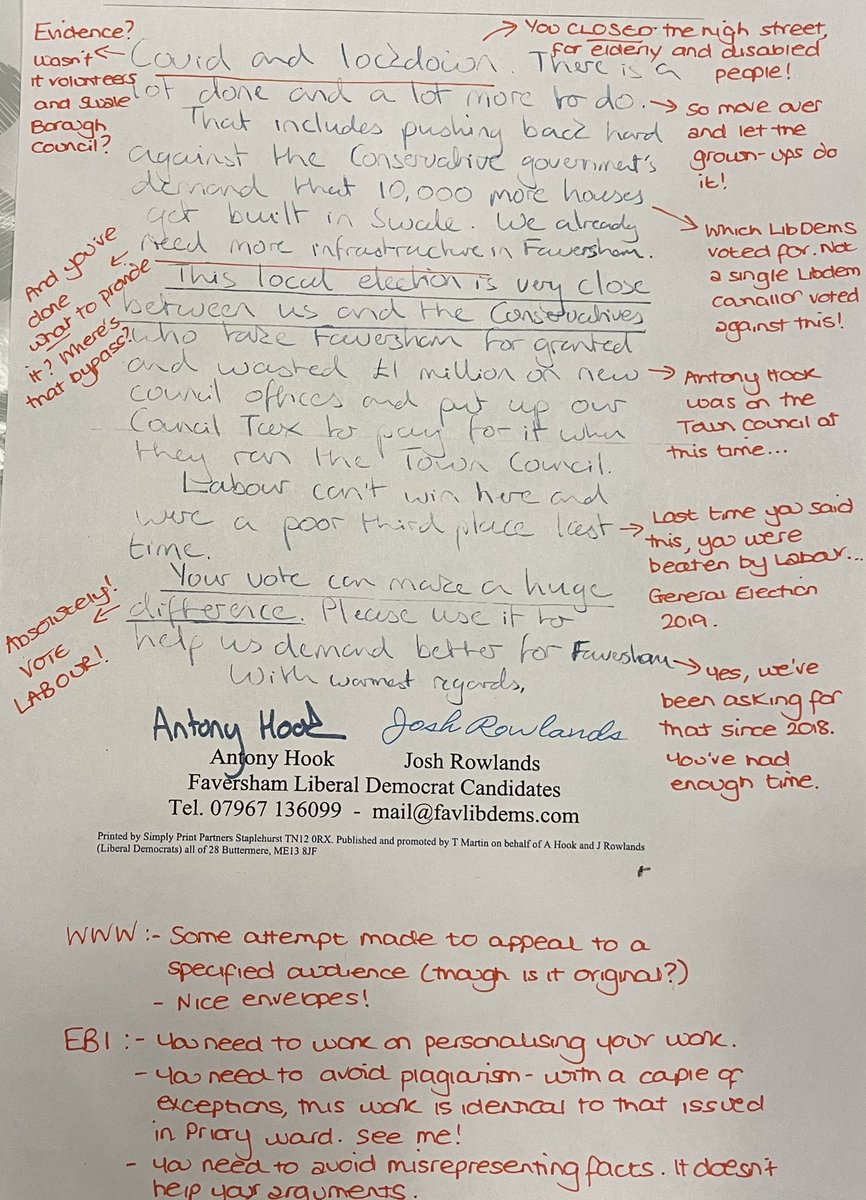 Evidence?
wasn't
it volunteers
and Swale
Borough
Council?
You CLOSED the high street,
for elderly and disabled
people!
Covid and lockdown. There is a
lot done and a lot more to do.
so move over
and let the
grown-ups do
it!
That includes pushing back hard
against the Conservative government's
demand that 10,000 more houses
get built in Swale. We already
need more infrastructure in Faversham.
Which LibDems
voted for. Not
a single Libdem
councillor voted
against this!
And you've
done
what to provide
it? Where's
that bypass?
This local election is very close
between us and the Conservatives
who take Faversham for granted
and wasted £1 million on new
council offices and put up our
Council Tax to pay for it when
they ran the Town Council.
Antony Hook
was on the
Town Council at
this time...
Labour can't win here and
were a poor third place last
time.
Last time you said
this, you were
beaten by Labour...
General Election
2019.
Your vote can make a huge
difference. Please use it to
help us demand better for Faversham
With warmest regards,
Absolutely!
VOTE
LABOUR!
Yes, we've
been asking for
that since 2018.
You've had
enough time.
Antony Hook Josh Rowlands
Antony Hook Josh Rowlands
Faversham Liberal Democrat Candidates
Tel. 07967 136099 - mail@favlibdems.com
Printed by Simply Print Partners Staplehurst TN12 0RX. Published and promoted by T Martin on behalf of A Hook and J Rowlands
(Liberal Democrats) all of 28 Buttermere, ME13 8JF
WWW :- Some attempt made to appeal to a
specified audience (though is it original?)
- Nice envelopes!
EBI :- You need to work on personalising your work.
- You need to avoid plagiarism - with a couple of
exceptions, this work is identical to that issued
in Priory ward. See me!
- You need to avoid misrepresenting facts. It doesn't
help your arguments.